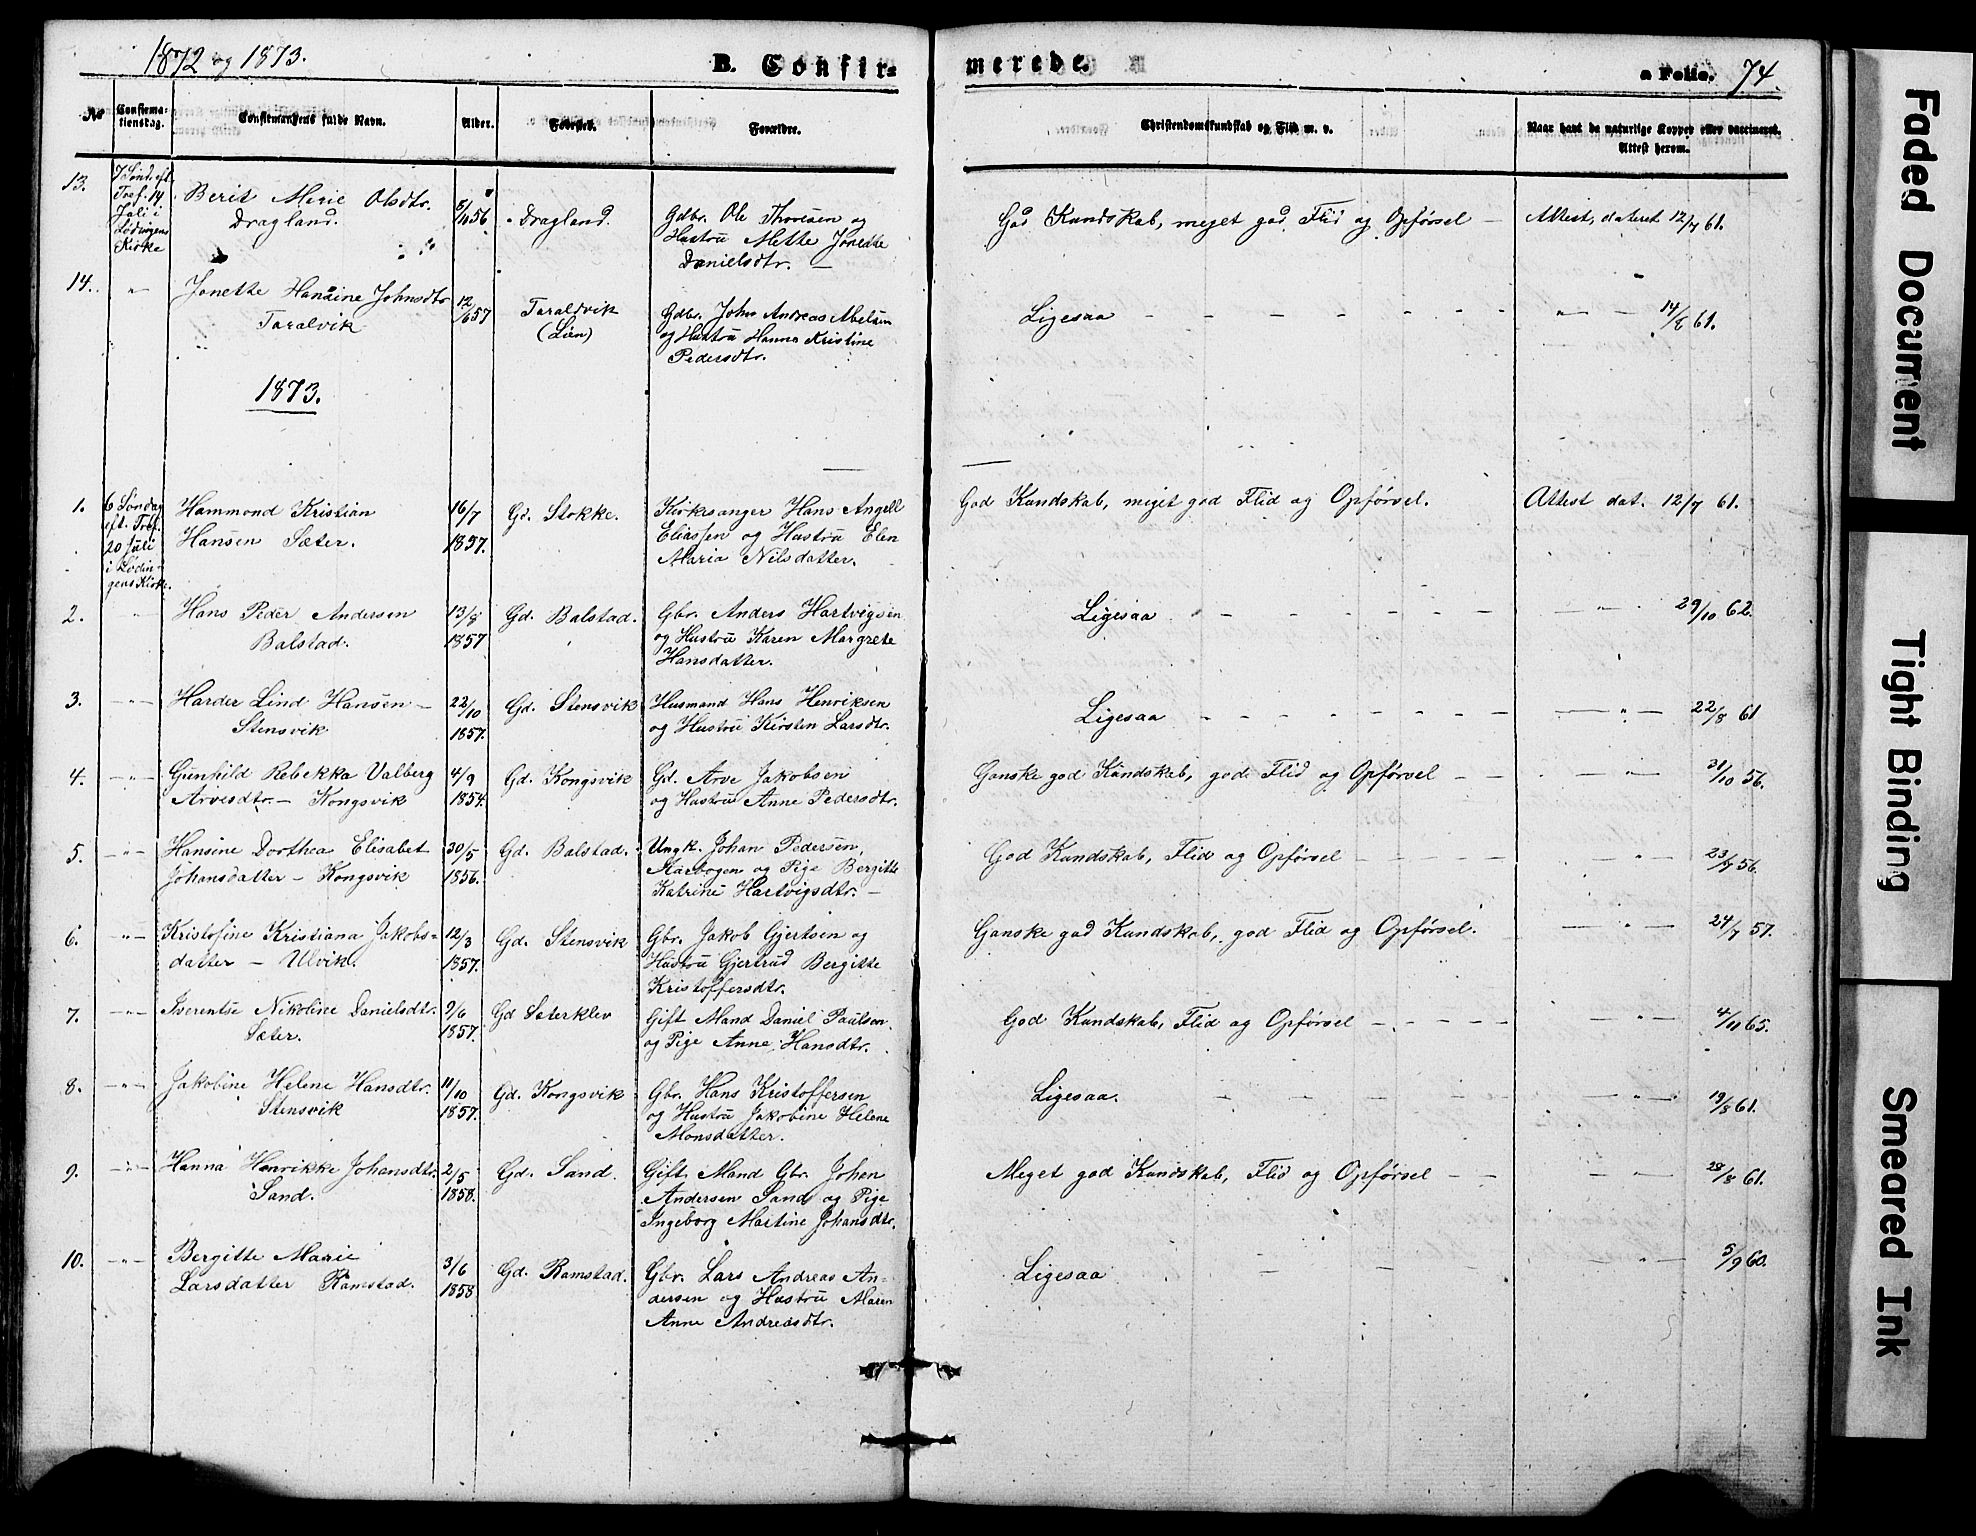 1872 og 1873.
B. Confir=
merede.
a Folio. 74.
No
Confirma-
tionsdag.
Confirmandens fulde Navn.
Alder.
Fødested.
Forældre.
Christendomskundskab og Flid m. v.
Naar havt de naturlige Kopper eller vaccineret.
Attest herom.
13.
7 Sønd. eft.
Tref. 14
Juli i
Lødingens
Kirke
Berit Marie Olsdtr.
Dragland.
5/11 56
Dragland.
Gdbr. Ole Thoresen og
Hustru Mette Jonette
Danielsdtr. —
God Kundskab, meget god Flid og Opførsel —
Attest, dateret 12/7 61.
14. " —
Jonette Hansine Johnsdtr
Taralvik
12/6 57
Taraldvik
(Lien)
Gdbr. John Andreas Abelsen
og Hustru Hanna Kristine
Pedersdtr.
Ligesaa — — — — — — — —
" — 14/8 61.
1873.
1.
6 Søndag
eft. Tref.
20 Juli
i Lødin-
gens Kirke.
Hammond Kristian
Hansen Sæter.
16/7
1857.
Gd. Stokke.
Kirkesanger Hans Angell
Eliassen og Hustru Elen
Maria Nilsdatter.
God Kundskab, meget god Flid og Opførsel.
Attest dat. 12/7 61.
2.
Hans Peder Andersen
Balstad.
13/8
1857
Gd. Balstad.
Gbr. Anders Hartvigsen
og Hustru Karen Margrete
Hansdatter.
Ligesaa — — — — — — —
— " 29/10 62.
3. — " —
Harder Lind Hansen —
Stensvik
22/10
1857.
Gd. Stensvik
Husmand Hans Henriksen
og Hustru Kirsten Larsdtr.
Ligesaa — — — — — — —
— " — 22/8 61
4. — " —
Gunhild Rebekka Valberg
Arvesdtr. — Kongsvik
4/9
1854.
Gd. Kongsvik
Gd. Arve Jakobsen
og Hustru Anne Pedersdtr.
Ganske god Kundskab, god Flid og Opførsel — —
— " — 31/10 56.
5. — " —
Hansine Dorthea Elisabet
Johansdatter — Kongsvik
30/5
1856.
Gd. Balstad.
Ungk. Johan Pedersen,
Aarbogen og Pige Bergitte
Katrine Hartvigsdtr. —
God Kundskab, Flid og Opførsel — — — — —
— " — 23/7 56.
6. — " —
Kristofine Kristiana Jakobs=
datter — Ulvik.
12/3
1857.
Gd. Stensvik
Gbr. Jakob Gjertsen og
Hustru Gjertrud Bergitte
Kristoffersdtr.
Ganske god Kundskab, god Flid og Opførsel.
— " — 24/7 57.
7. — " —
Nikoline Danielsdtr.
Sæter.
9/6
1857.
Gd Sæterklev
Gift Mand Daniel Paulsen
og Pige Anne Hansdtr.
God Kundskab, Flid og Opførsel — — — — —
— " — 4/11 65.
8. — " —
Jakobine Helene Hansdtr.
Stensvik
11/10
1857.
Gd. Kongsvik
Gbr. Hans Kristoffersen
og Hustru Jakobine Helene
Monsdatter.
Ligesaa. — — — — — — —
— " — 19/8 61.
9. — " —
Hanna Henrikke Johansdtr.
Sand.
2/5
1858.
Gd. Sand.
Gift Mand Gbr. Johan
Andersen Sand og Pige
Ingeborg Martine Johansdtr.
Meget god Kundskab, Flid og Opførsel — —
— " — 28/8 61.
10. — " —
Bergitte Marie
Larsdatter Ramstad.
3/6
1858.
Gd. Ramstad.
Gbr. Lars Andreas An-
dersen og Hustru Maren
Anne Andreasdtr.
Ligesaa — — — —
" — 5/9 60.
Faded Document
Tight Binding
Smeared Ink